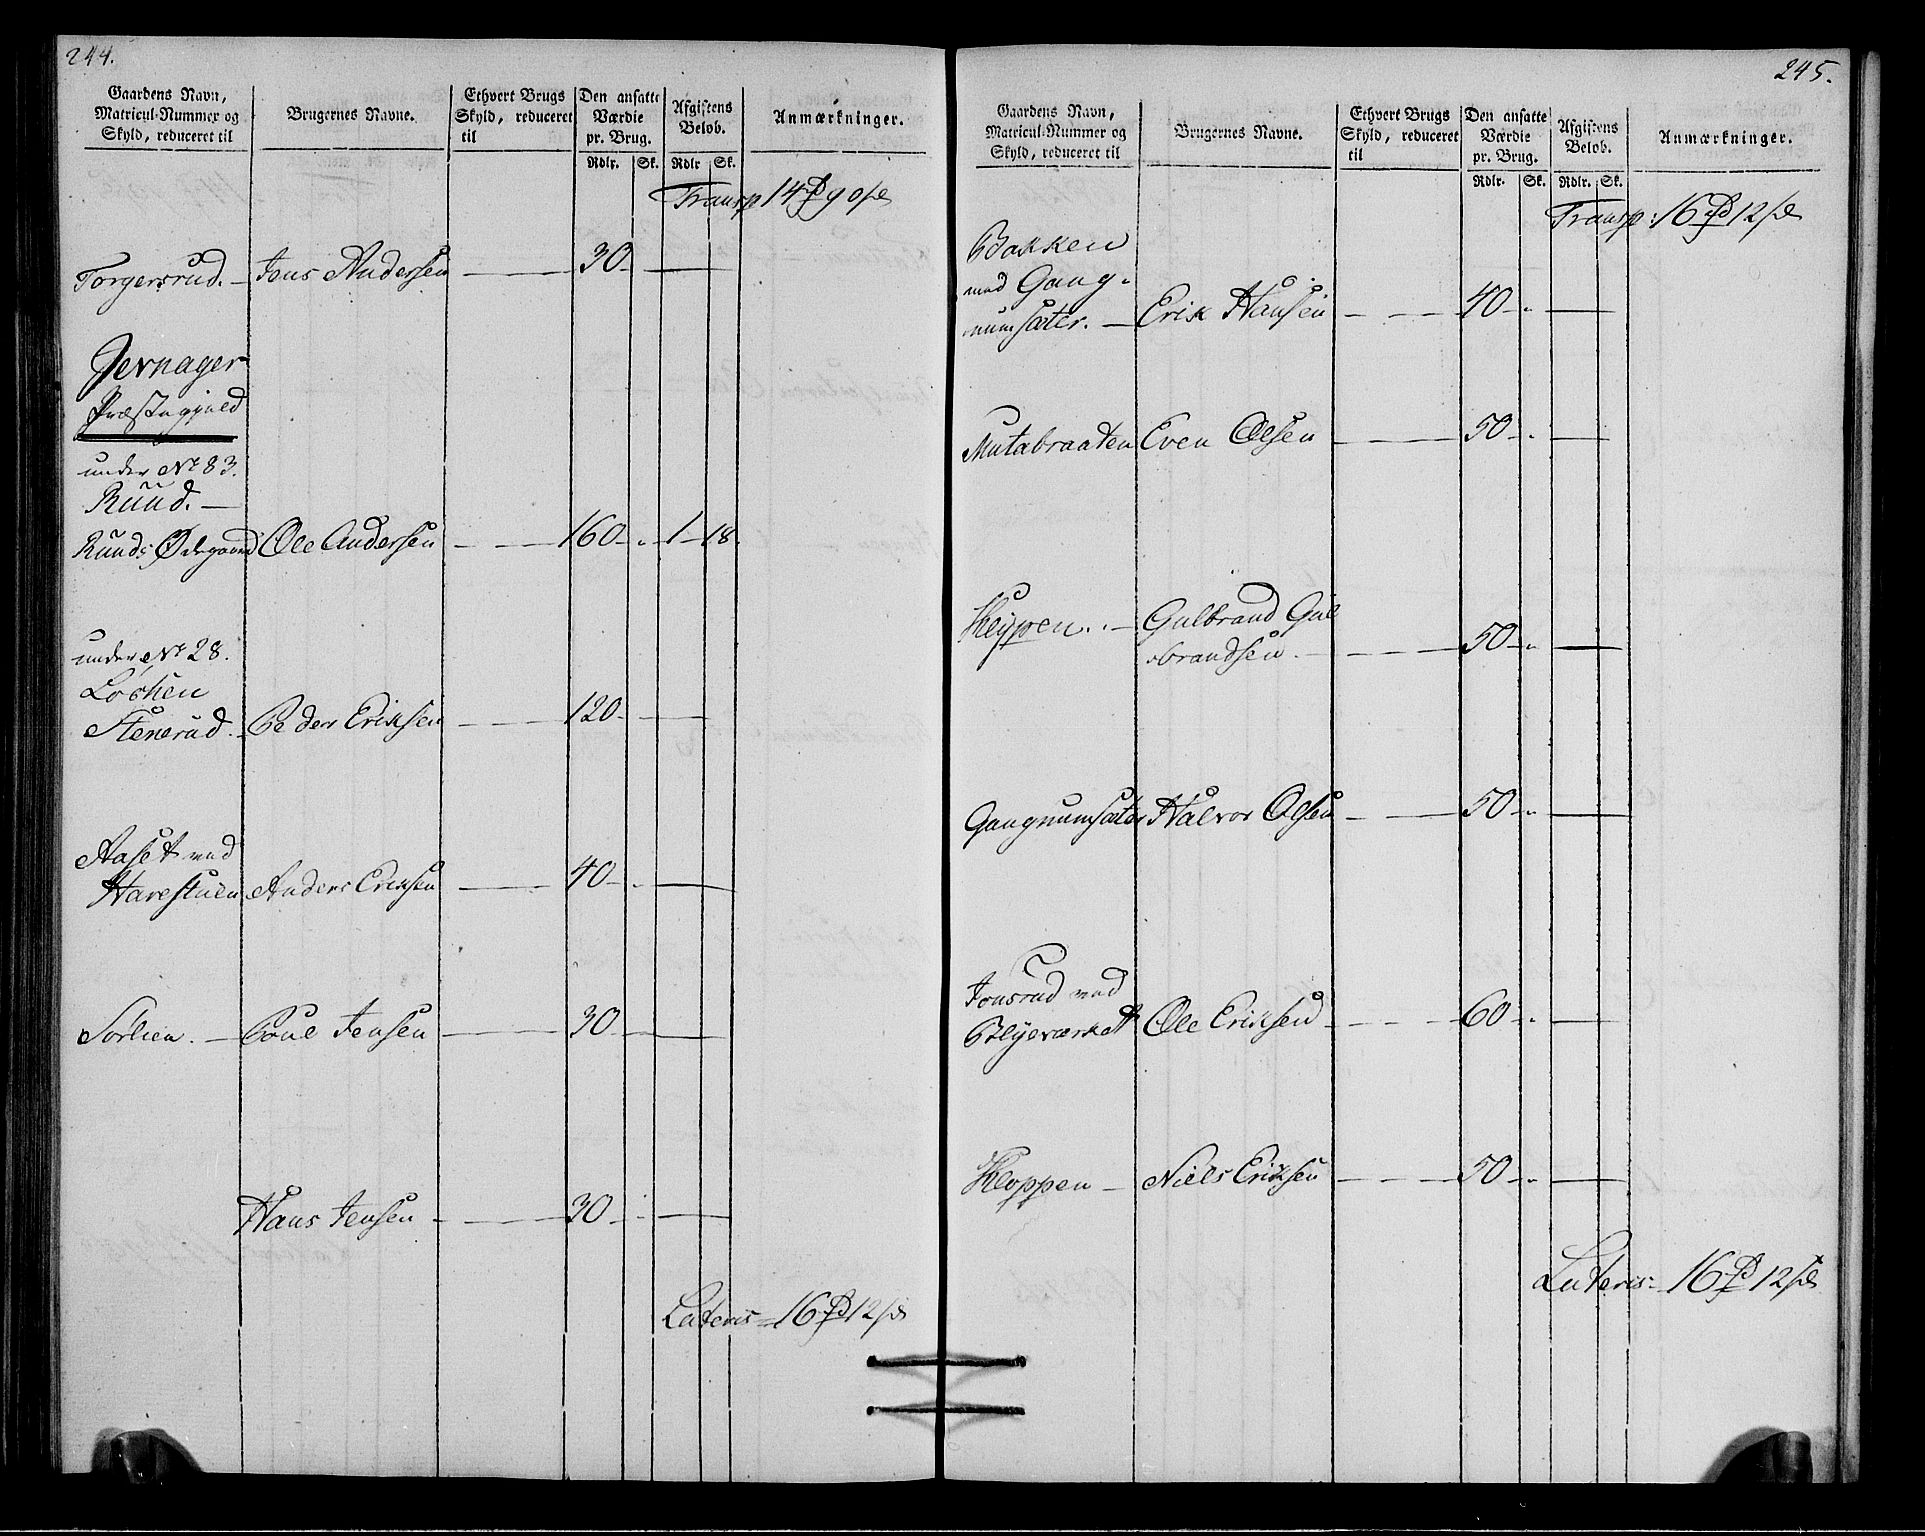 244.
Gaardens Navn, Matricul-Nummer og Skyld, reduceret til
Brugernes Navne.
Ethvert Brugs Skyld, reduceret til
Den ansatte Værdie pr. Brug.
Afgiftens Beløb.
Anmærkninger.
Rdlr. Sk. Rdlr Sk.
Transp 14 90
Torgersrud. — Jens Andersen — 30 —
Jevnager
Præstegjeld
under No 83.
Ruud. —
Ruuds Ødegaard Ole Andersen — 160 - 1 - 18.
under No 28.
Løchen
Stenerud. Peder Eriksen — 120 —
Aaset ved
Harestuen Anders Eriksen — 40 —
Sørlien. — Poul Jensen — 30 —
Hans Jensen — 30 —
Lateris = 16 12
245.
Gaardens Navn, Matricul-Nummer og Skyld, reduceret til
Brugernes Navne.
Ethvert Brugs Skyld, reduceret til
Den ansatte Værdie pr. Brug.
Afgiftens Beløb.
Anmærkninger.
Rdlr. Sk. Rdlr. Sk.
Transp: 16 12
Bakken
med Gang-
numsæter. — Erik Hansen — 40 —
Mutabraaten Even Olsen — 50 —
Gulbrand Gul
brandsen — 50 —
Gangnumsæter Halvor Olsen — 50 —
Jonsrud ved
Blyeværket Ole Eriksen — 60 —
Kloppen — Niels Eriksen — 50 —
Lateris = 16 12